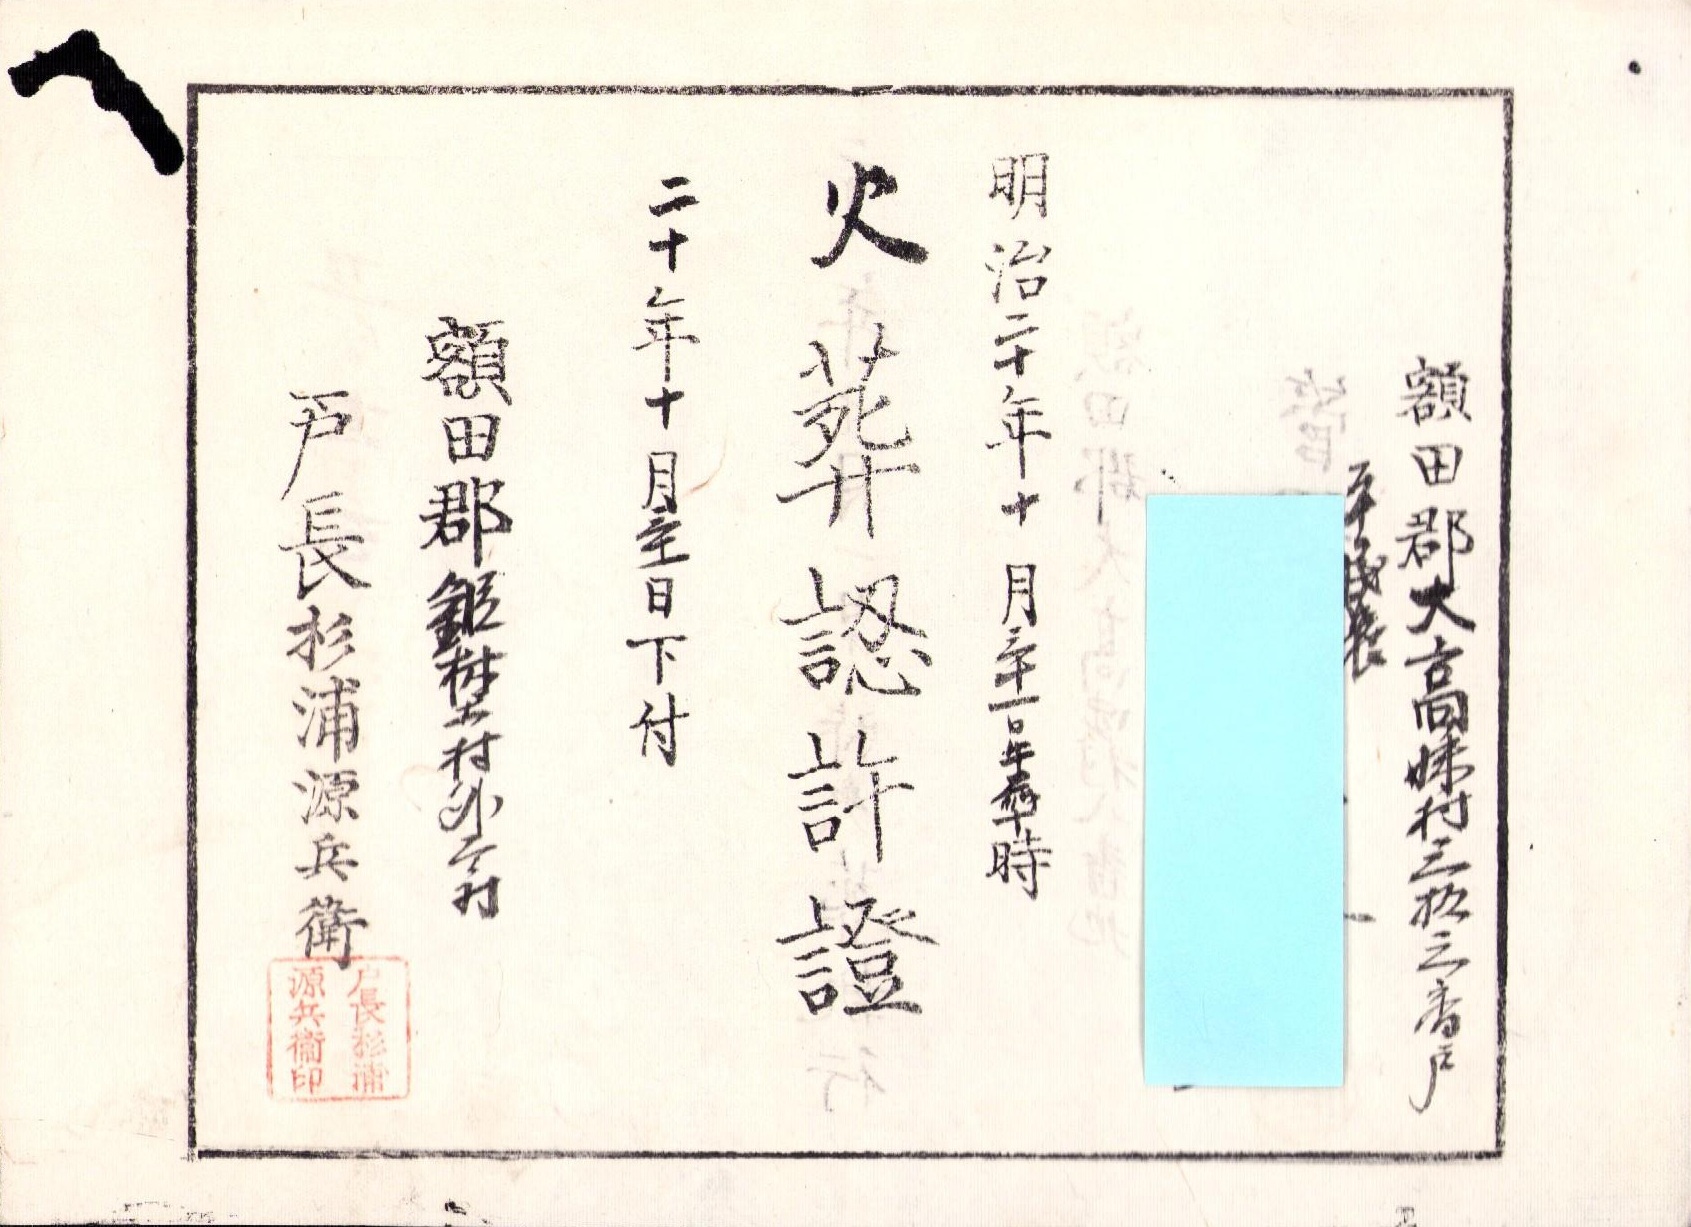 額田郡大高味村三拾三番戸
平民
明治二十年十月三十一日午前十時
火葬認許證
二十年十月三十日下付
額田郡鍛埜村外二村
戸長杉浦源兵衛
戸長杉浦
源兵衞印